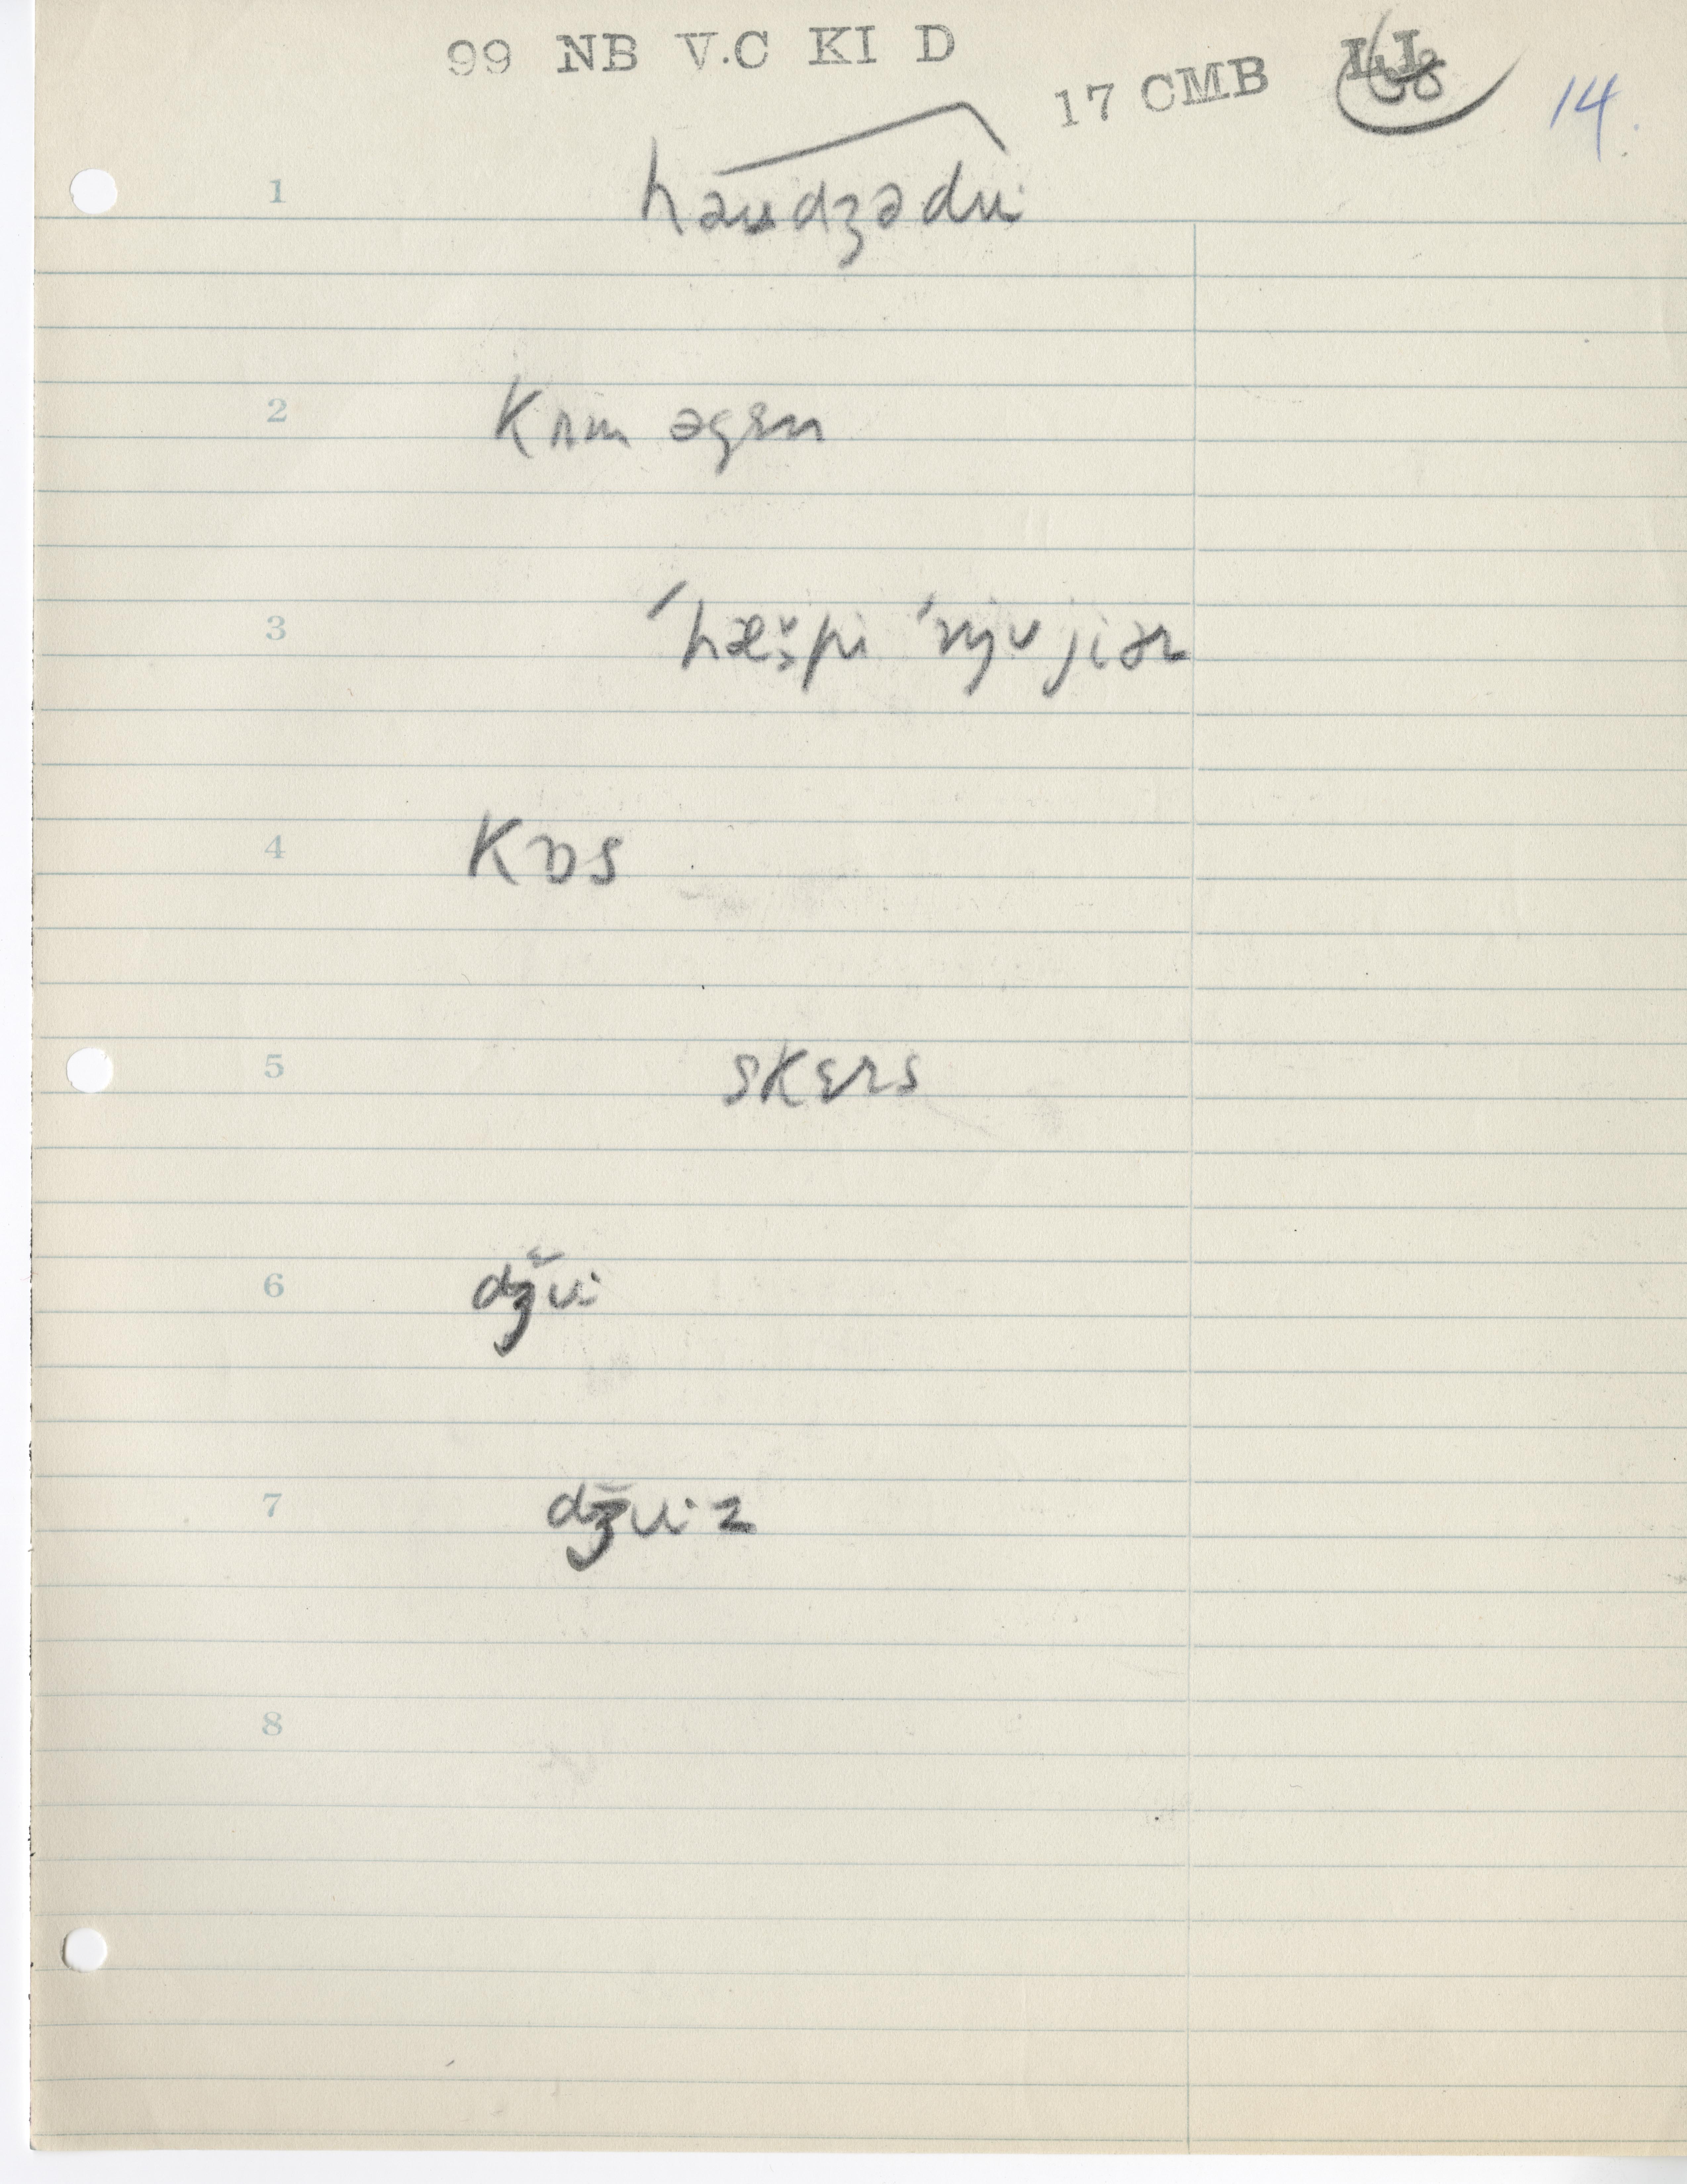 99 NB V.C KI D
17 CMB
14.
1 haudzədu
2 Kʌm əgɛn
3 ´hæšpi ´njujiər
4 Kɒs
5 skɛrs
6 dǯui
7 dǯuiz
8